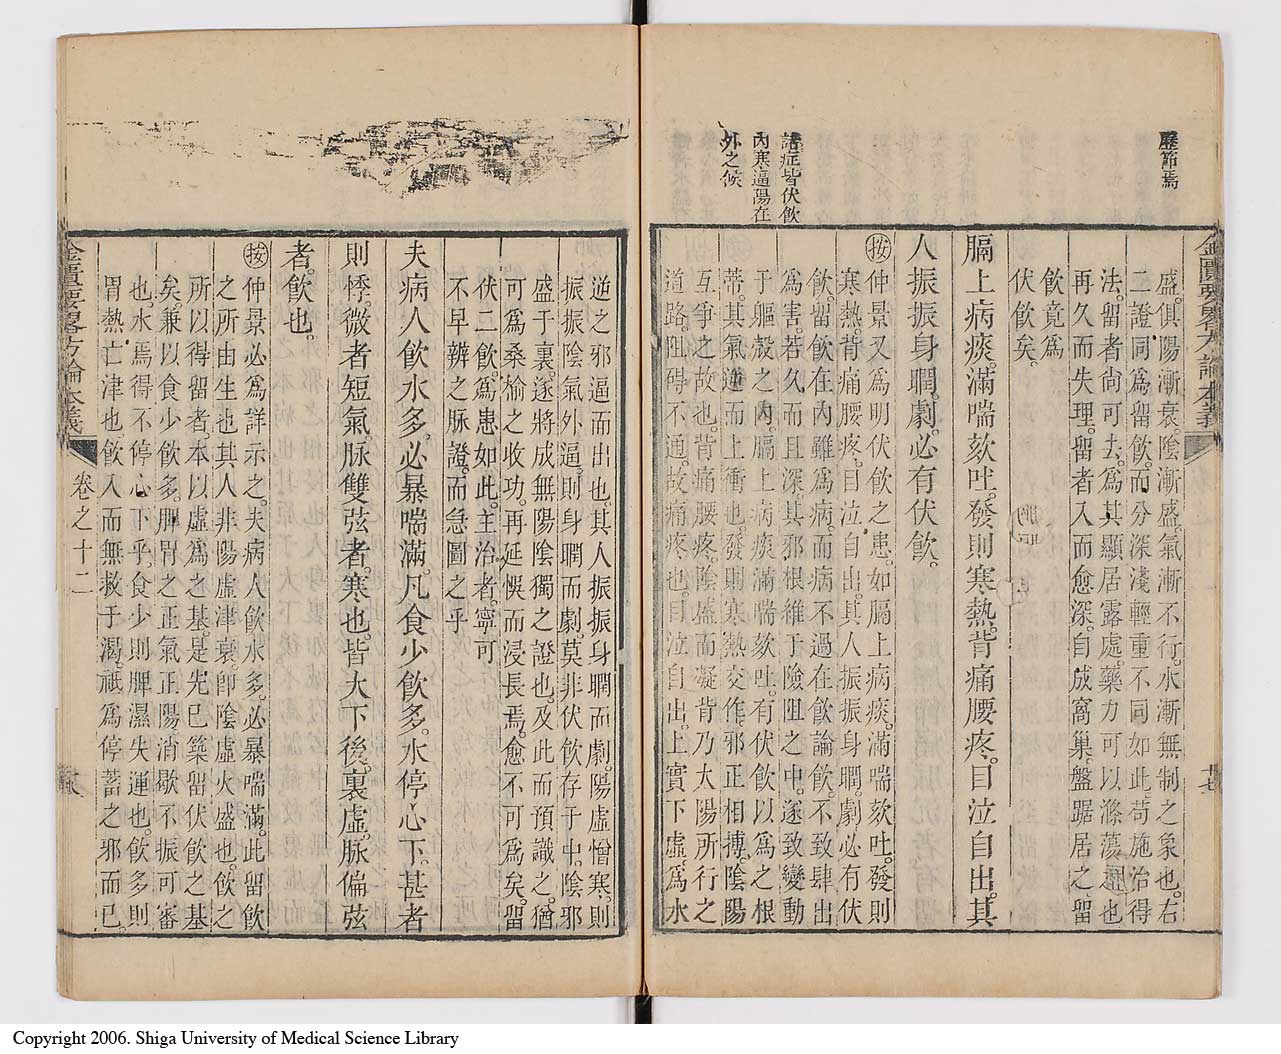 歷節焉
諸症皆伏飲
內寒逼陽在
外之候
盛俱陽漸衰陰漸盛氣漸不行水漸無制之象也右
二證同為留飲而分深淺輕重不同如此苟施治得
法留者尚可去為其顯居露處藥力可以滌蕩之也
再久而失理留者入而愈深自成窩巢盤踞居之留
飲竟為
伏飲矣
膈上病痰滿喘欬吐發則寒熱背痛腰疼目泣自出其
人振振身瞤劇必有伏飲
按仲景又為明伏飲之患如膈上病痰滿喘欬吐發則
寒熱背痛腰疼目泣自出其人振振身瞤劇必有伏
飲留飲在內雖為病而病不過在飲論飲不致肆出
為害若久而且深其邪根雖于險阻之中遂致變動
于軀殼之內膈上病痰滿喘欬吐有伏飲以為之根
蒂其氣逆而上衝也發則寒熱交作邪正相搏陰陽
互爭之故也背痛腰疼陰盛而凝背乃太陽所行之
道路阻碍不通故痛疼也目泣自出上實下虛為水
金匱要畧方論本義
十七
逆之邪逼而出也其人振振身瞤而劇陽虛憎寒則
振振陰氣外逼則身瞤而劇莫非伏飲存于中陰邪
盛于裏遂將成無陽陰獨之證也及此而預識之猶
可為桑榆之收功再延悞而浸長焉愈不可為矣留
伏二飲為患如此主治者寧可
不早辨之脉證而急圖之乎
夫病人飲水多必暴喘滿凡食少飲多水停心下甚者
則悸微者短氣脉雙弦者寒也皆大下後裏虛脉偏弦
者飲也
按仲景必為詳示之夫病人飲水多必暴喘滿此留飲
之所由生也其人非陽虛津衰卽陰虛火盛也飲之
所以得留者本以虛為之基是先已築留伏飲之基
矣兼以食少飲多脾胃之正氣正陽消歇不振可審
也水焉得不停心下乎食少則脾濕失運也飲多則
胃熱亡津也飲入而無救于渴祇為停蓄之邪而已
金匱要畧方論本義
卷之十二
Copyright 2006. Shiga University of Medical Science Library